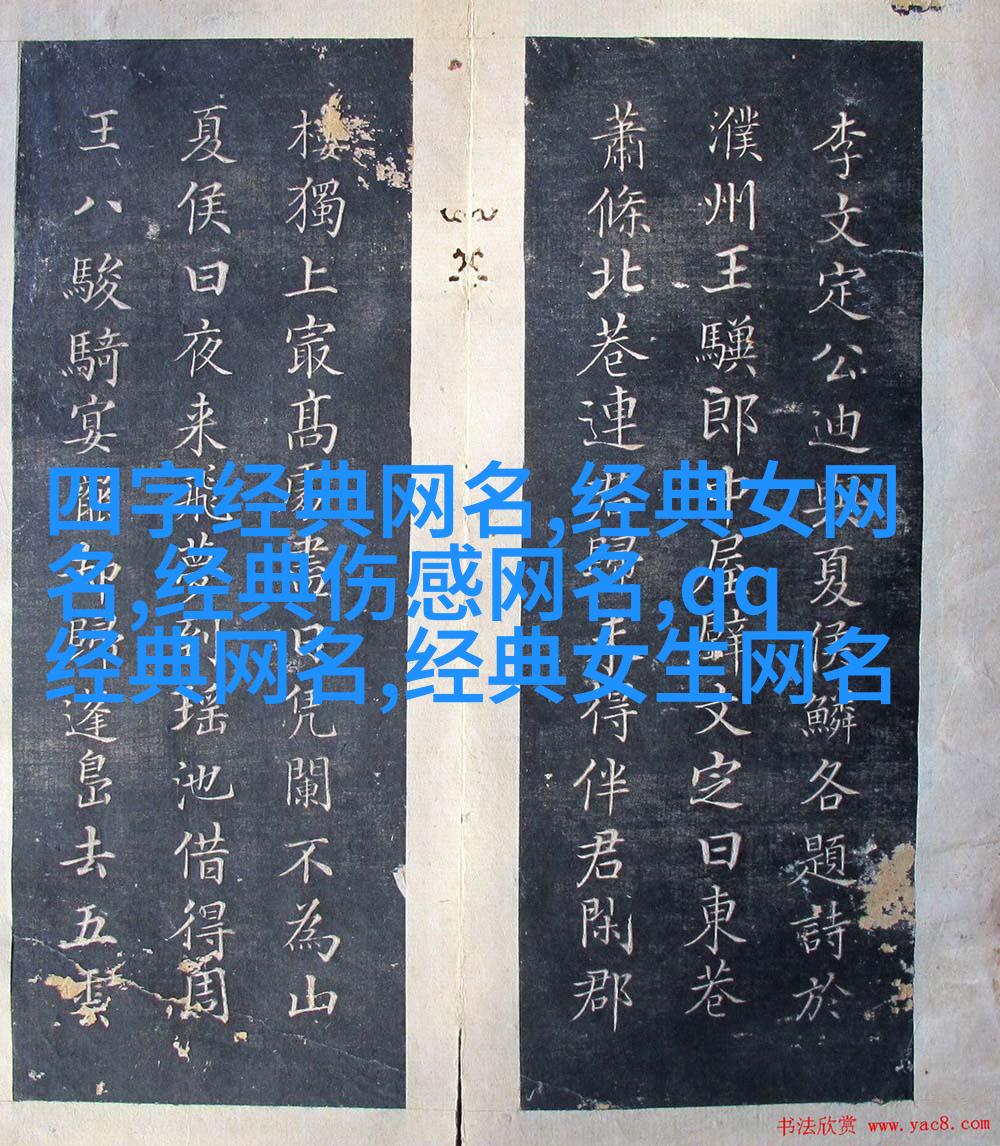 李文定公迪與夏侯鱗各題詩於
濮州王驥郎中屋壁文定曰東巷
蕭條北巷連 得伴君閑郡
樓獨上寂高 不為山
夏侯曰夜来飛夢到瑶池借得周
王八駿騎宴罷却歸逢島去五雲
四字经典网名,经典女网
名,经典伤感网名,qq
经典网名,经典女生网名
书法欣赏 www.yac8.com